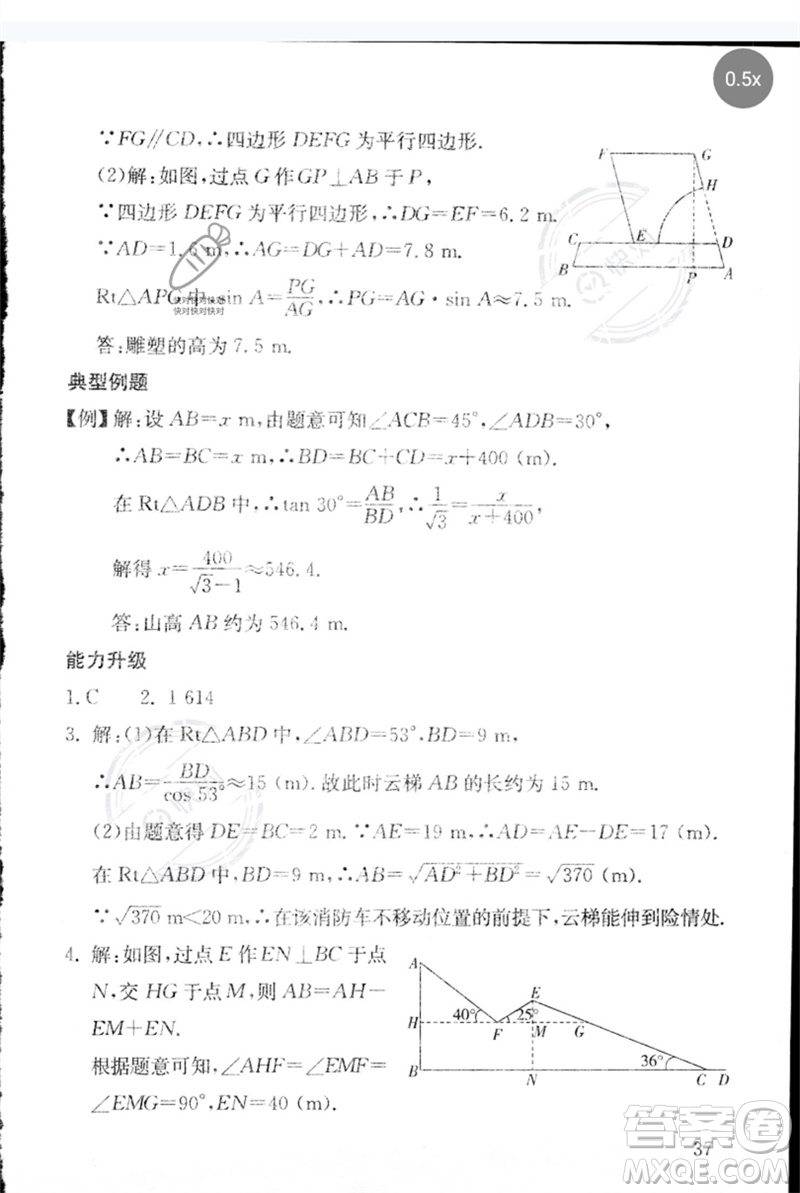 0.5x
∵FG∥CD,∴四边形 DEFG 为平行四边形.
(2)解:如图,过点 G 作 GP⊥AB 于 P,
∵四边形 DEFG 为平行四边形,∴DG=EF=6.2 m.
∵AD=1.6 m,∴AG=DG+AD=7.8 m.
Rt△APG 中,sin A=PG/AG,∴PG=AG·sin A≈7.5 m.
答:雕塑的高为 7.5 m.
F G
H
C E D
B P A
快对快对快对
快对快对快对
典型例题
【例】解:设 AB=x m,由题意可知∠ACB=45°,∠ADB=30°,
∴AB=BC=x m,∴BD=BC+CD=x+400 (m).
在 Rt△ADB 中,∴tan 30°=AB/BD,∴1/√3=x/(x+400),
解得 x=400/(√3-1)≈546.4.
答:山高 AB 约为 546.4 m.
能力升级
1.C 2. 1 614
3. 解:(1)在 Rt△ABD 中,∠ABD=53°,BD=9 m,
∴AB=BD/cos 53°≈15 (m).故此时云梯 AB 的长约为 15 m.
(2)由题意得 DE=BC=2 m.∵AE=19 m,∴AD=AE-DE=17 (m).
在 Rt△ABD 中,∵BD=9 m,∴AB=√(AD²+BD²)=√370 (m).
∵√370 m<20 m,∴在该消防车不移动位置的前提下,云梯能伸到险情处.
4. 解:如图,过点 E 作 EN⊥BC 于点
N,交 HG 于点 M,则 AB=AH-
EM+EN.
根据题意可知,∠AHF=∠EMF=
∠EMG=90°,EN=40 (m).
A
E
40° 25°
H F M G
36°
B N C D
37
答案圈
MXQE.COM